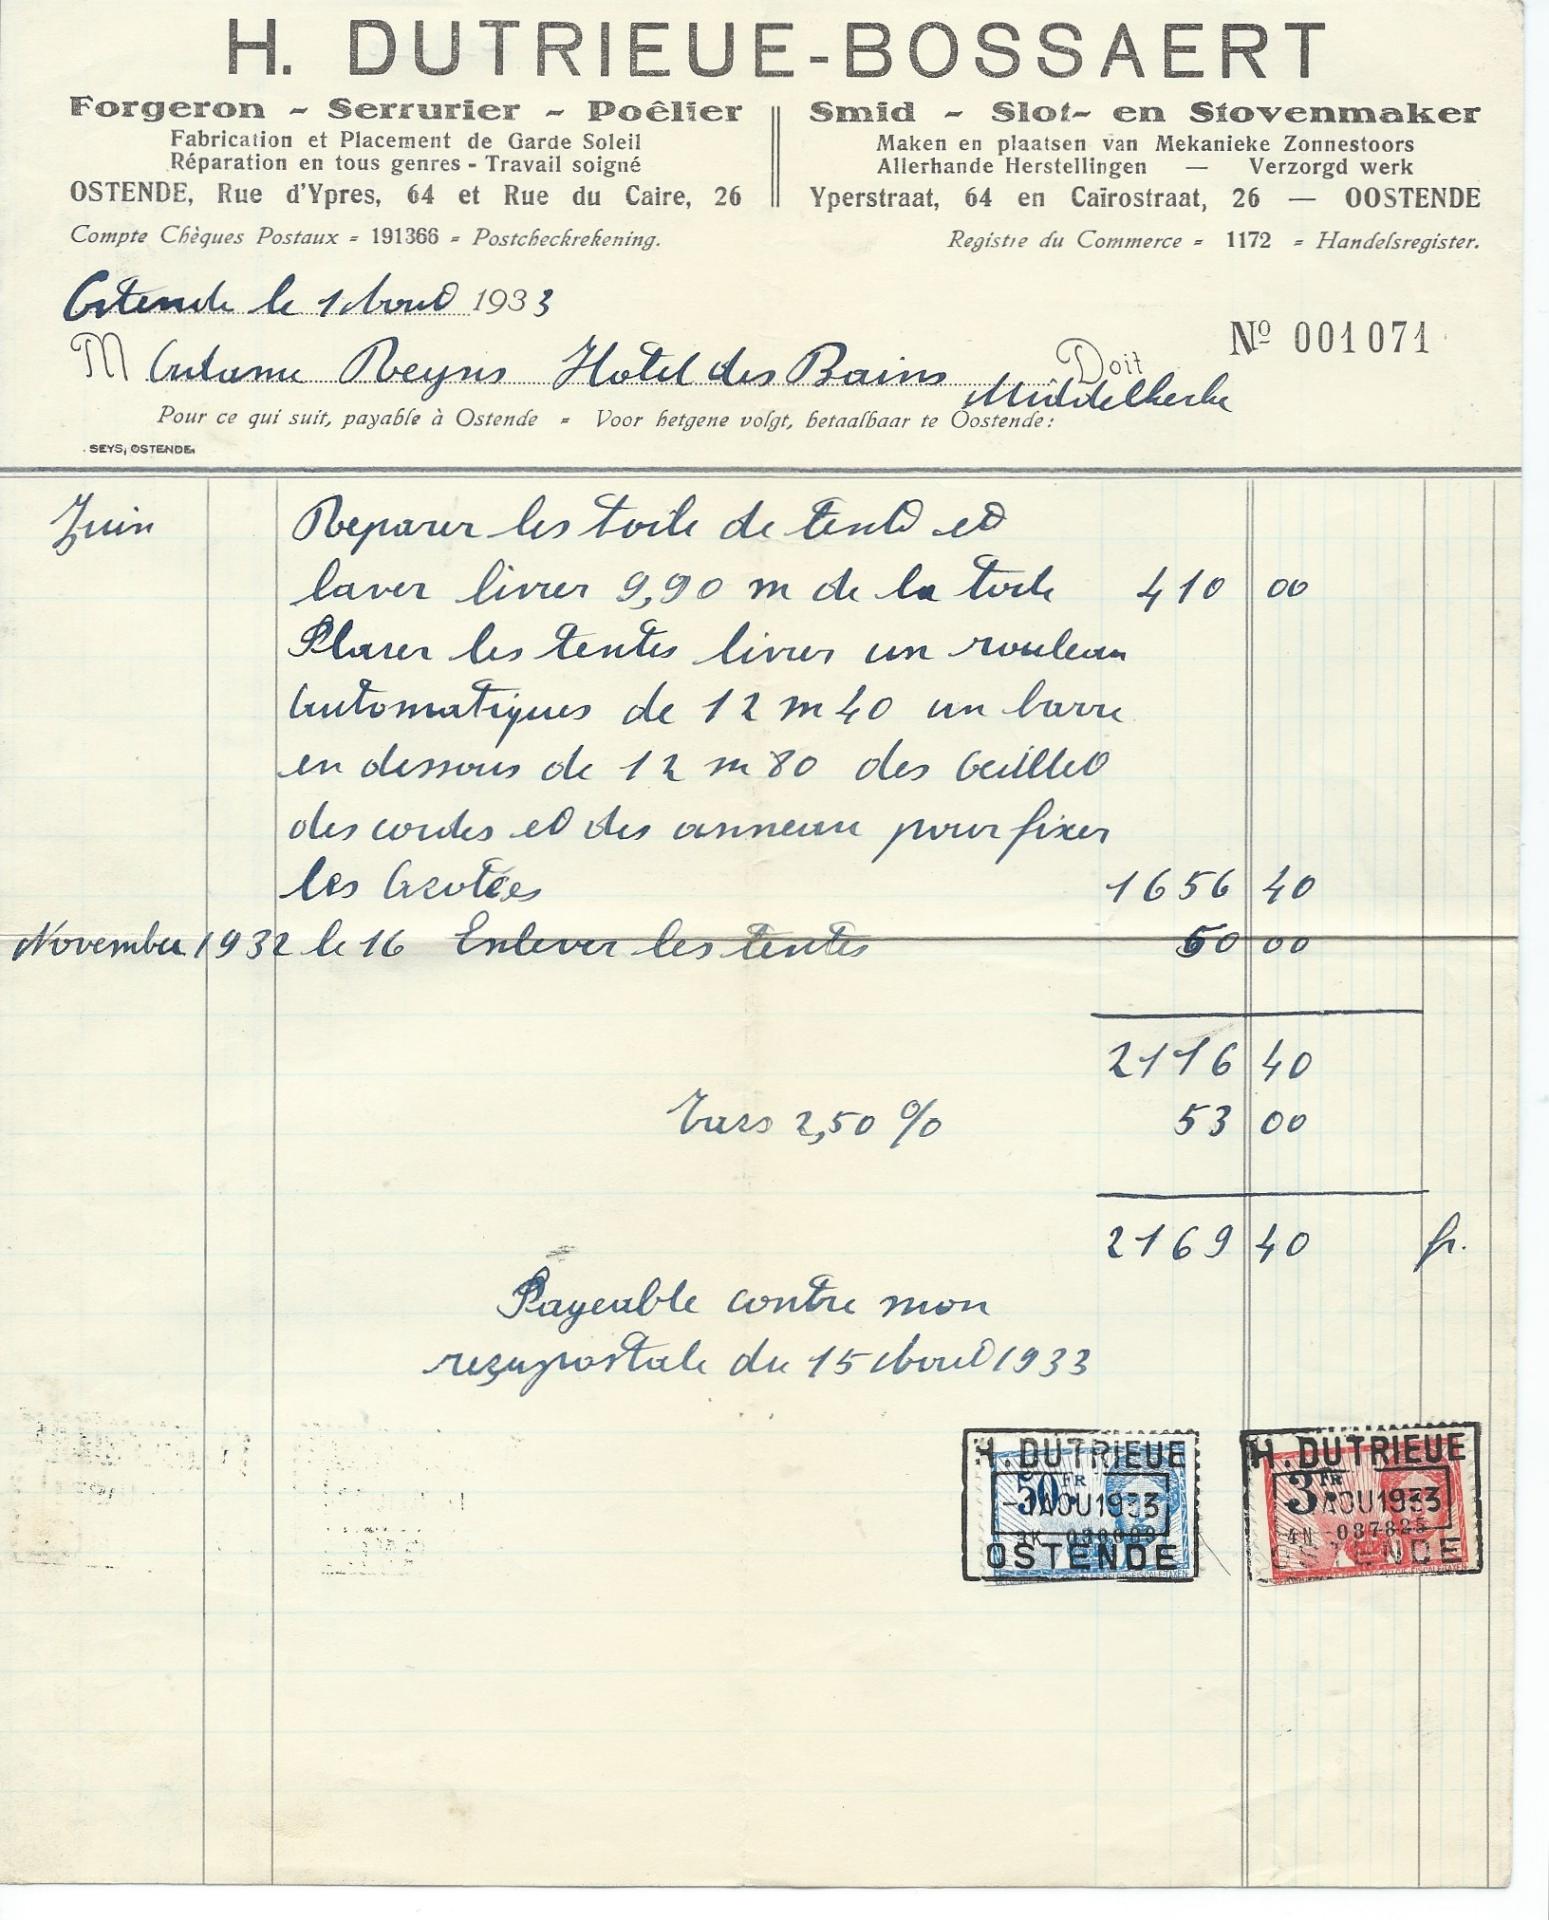 H. DUTRIEUE-BOSSAERT
Forgeron - Serrurier - Poêlier
Fabrication et Placement de Garde Soleil
Réparation en tous genres - Travail soigné
OSTENDE, Rue d'Ypres, 64 et Rue du Caire, 26
Smid - Slot- en Stovenmaker
Maken en plaatsen van Mekanieke Zonnestoors
Allerhande Herstellingen — Verzorgd werk
Yperstraat, 64 en Caïrostraat, 26 — OOSTENDE
Compte Chèques Postaux = 191366 = Postcheckrekening.
Registre du Commerce = 1172 = Handelsregister.
Ostende le 1 Aout 1933
Nº 001071
M Madame Reyns Hotel des Bains Doit
Middelkerke
Pour ce qui suit, payable à Ostende = Voor hetgene volgt, betaalbaar te Oostende:
SEYS, OSTENDE.
Juin Reparer les toile de tent et
laver livrer 9,90 m de la toile 410 00
Placer les tentes livrer un rouleau
Automatiques de 12 m 40 un barre
en dessous de 12 m 80 des Oeillet
des cordes et des anneau pour fixer
les 1656 40
November 1932 le 16 Enlever les tentes 50 00
2116 40
Taxs 2,50 % 53 00
2169 40 fr.
Payeable contre mon
reçu postale du 15 Aout 1933
H. DUTRIEUE
50 FR
-1 AOU 1933
OSTENDE
H. DUTRIEUE
3 FR
AOU 1933
4N 037825
OSTENDE